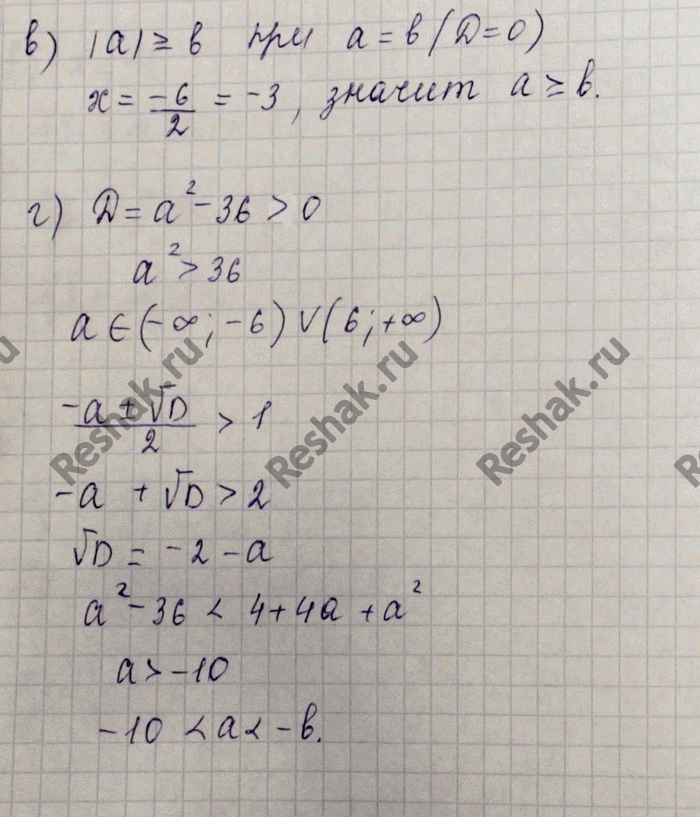 в) |a| ≥ в при a = в (D = 0)
x = -6/2 = -3, значит a ≥ в.
г) D = a² - 36 > 0
a² > 36
a ∈ (-∞; -6) ∨ (6; +∞)
(-a ± √D)/2 > 1
-a + √D > 2
√D = -2 - a
a² - 36 < 4 + 4a + a²
a > -10
-10 < a < -в.
Reshak.ru
Reshak.ru
Reshak.ru